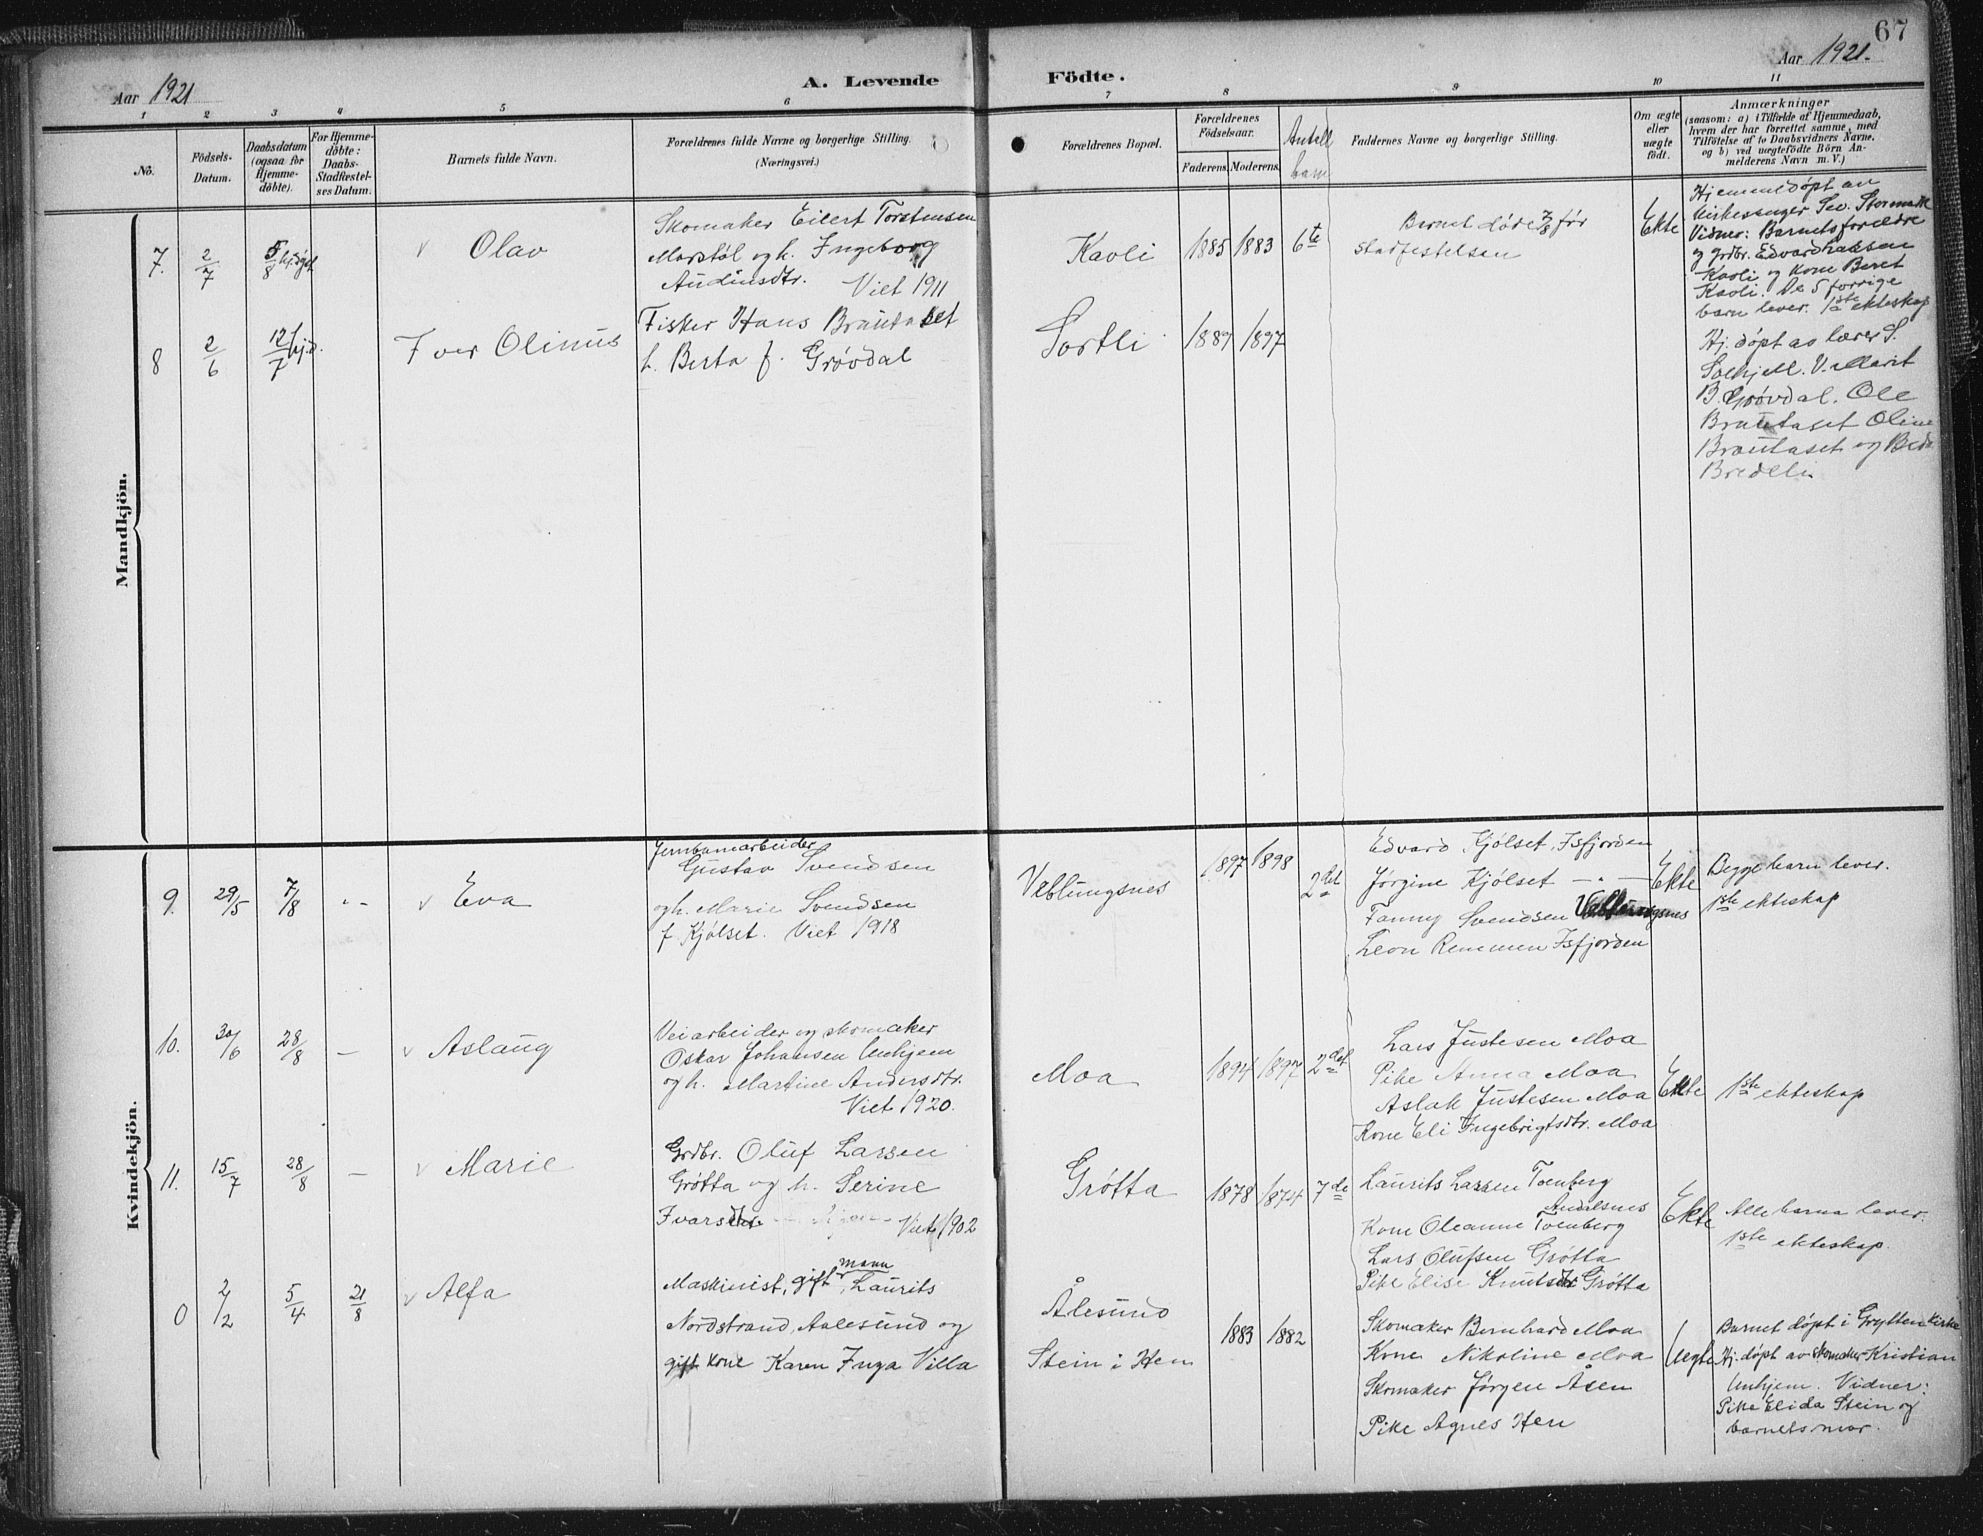 67
Aar 1921
A. Levende
Födte.
Aar 1921.
1 2 3 4 5 6 7 8 9 10 11
No.
Födsels-
Datum.
Daabsdatum
(ogsaa for
Hjemme-
döbte).
For Hjemme-
döbte:
Daabs-
Stadfæstel-
ses Datum.
Barnets fulde Navn.
Forældrenes fulde Navne og borgerlige Stilling.
(Næringsvei.)
Forældrenes Bopæl.
Forældrenes
Födselsaar.
Faderens. Moderens.
Antall
barn
Faddernes Navne og borgerlige Stilling.
Om ægte
eller
uægte
födt.
Anmærkninger
(saasom: a) i Tilfælde af Hjemmedaab,
hvem der har forrettet samme, med
Tilföielse af to Daabsvidners Navne.
og b) ved uægtefödte Börn An-
melderens Navn m. V.)
Mandkjön.
7. 2/7 5/8 hj.døpt
v Olav
Skomaker Eilert Torstensen
Marstøl og h. Ingeborg
Audinsdtr. Viet 1911
Kavli
1885 1883 6te
Barnet døde 7/8 før
stadfestelsen
Ekte
Hjemmedøpt av
kirkesanger Sev. Stormolk
Vidner: Barnets forældre
og grdbr. Edvard Larsen
Kavli og kone Beret
Kavli. De 5 forrige
barn lever. 1ste ekteskap
8 2/6 12/7 hj.d.
Iver Olinus
Fisker Hans Brautaset
h. Berta f. Grøvdal
Sortli
1889 1897
Hj. døpt av lærer S.
Solhjell. V. Marit
B. Grøvdal. Ole
Brautaset Oline
Brautaset og
Bredeli
Kvindekjön.
9. 29/5 7/8 --
v Eva
Jernbanearbeider
Gustav Svendsen
og h. Marie Svendsen
f. Kjølset. Viet 1918
Veblungsnes
1897 1898
2det
Edvard Kjølset, Isfjorden
Jørgine Kjølset - " -
Fanny Svendsen Veblungsnes
Leon Remmen Isfjorden
Ekte
Begge barn lever.
1ste ekteskap
10. 30/6 28/8 -
v Aslaug
Veiarbeider og skomaker
Oskar Johansen Unhjem
og h. Martine Andersdtr.
Viet 1920.
Moa
1894 1897 2det
Lars Justesen Moa
Pike Anna Moa
Aslak Justesen Moa
Kone Eli Ingebrigtsdtr. Moa
Ekte
1ste ekteskap
11. 15/7 28/8 -
v Marie
Grdbr. Oluf Larsen
Grøtta og h. Serine
Ivarsdtr. Viet 1902
Grøtta
1878 1874 7de
Laurits Larsen Tomberg
Andalsnes
Kone Oleanne Tomberg
Lars Olufsen Grøtta
Pike Elise Knutsdtr Grøtta
Ekte
Alle barna lever.
1ste ekteskap.
0 2/2 5/4 21/8
v Alfa
Maskinist, gift mann, Laurits
Nordstrand, Aalesund og
gift kone Karen Inga Villa
Ålesund
Stein i Hen
1883 1882
Skomaker Bernhard Moa
Kone Nikoline Moa
Skomaker Jørgen Åsen
Pike Agnes Hen
Uegte
Barnet døpt i Grytten kirke
Hj. døpt av skomaker Kristian
Unhjem. Vidner:
Pike Elida Stein og
barnets mor.